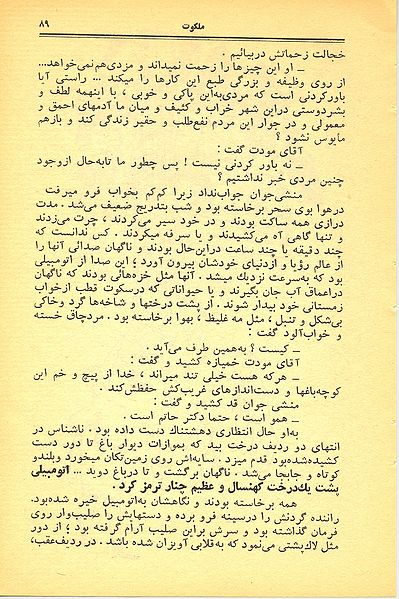 ملکوت
۸۹
خجالت زحماتش دربیائیم .
ـ او این چیزها را زحمت نمیداند و مزدی‌هم‌نمی‌خواهد...
از روی وظیفه و بزرگی طبع این کارها را میکند ... راستی آیا
باورکردنی است که مردی‌به‌این پاکی و خوبی ، با اینهمه لطف و
بشردوستی دراین شهر خراب و کثیف و میان ما آدمهای احمق و
معمولی و در جوار این مردم نفع‌طلب و حقیر زندگی کند و بازهم
مایوس نشود ؟
آقای مودت گفت :
ـ نه باور کردنی نیست ! پس چطور ما تابه‌حال ازوجود
چنین مردی خبر نداشتیم ؟
منشی‌جوان جواب‌نداد زیرا کم‌کم بخواب فرو میرفت
درهوا بوی سحر برخاسته بود و شب بتدریج ضعیف‌می‌شد . مدت
درازی همه ساکت بودند و در خود سیر می‌کردند ، چرت می‌زدند
و تنها گاهی آه می‌کشیدند و یا سرفه میکردند . کس ندانست که
چند دقیقه یا چند ساعت دراین‌حال بودند و ناگهان صدائی آنها را
از عالم رؤیا و ازدنیای خودشان بیرون آورد ؛ این صدا از اتومبیلی
بود که به‌سرعت نزدیك میشد . آنها مثل خزه‌هائی بودند که ناگهان
دراعماق آب جان بگیرند و یا حیواناتی که درسکوت قطب ازخواب
زمستانی خود بیدار شوند . از پشت درختها و شاخه‌ها گرد وخاکی
بی‌شکل و تنبل ، مثل مه غلیظ ، بهوا برخاسته بود . مردچاق خسته
و خواب‌آلود گفت :
ـ کیست ؟ به‌همین طرف می‌آید .
آقای مودت خمیازه کشید و گفت :
ـ هرکه هست خیلی تند میراند ، خدا از پیچ و خم این
کوچه‌باغها و دست‌اندازهای غریب‌کش حفظش‌کند .
منشی جوان قد کشید و گفت :
ـ همو است ، حتما دکتر حاتم است .
به‌او حال انتظاری دهشتناك دست داده بود . ناشناس در
انتهای دو ردیف درخت بید که بموازات دیوار باغ تا دور دست
کشیده‌شده‌بود قدم میزد . سایه‌اش روی زمین‌تکان میخورد وبلندو
کوتاه و جابجا می‌شد . ناگهان برگشت و تا درباغ دوید ... اتومبیلی
پشت یك‌درخت کهنسال و عظیم چنار ترمز کرد .
همه برخاسته بودند و نگاهشان به‌اتومبیل خیره شده‌بود.
راننده گردنش را درسینه فرو برده و دستهایش را صلیب‌وار روی
فرمان گذاشته بود و سرش براین صلیب آرام گرفته بود ؛ از دور
مثل لاك‌پشتی می‌نمود که به‌قلابی آویزان شده باشد . در ردیف‌عقب،